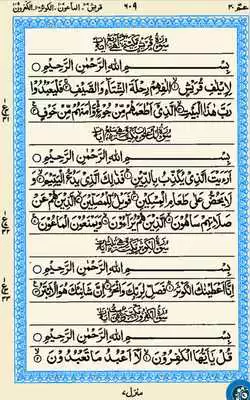 عمّ ٣٠ ٦٠٩ قريش الماعون الكوثر الكفرون
سورة قريش مكية
بِسْمِ اللهِ الرَّحْمٰنِ الرَّحِيْمِ ○
لِاِيْلٰفِ قُرَيْشٍ ○ اٖلٰفِهِمْ رِحْلَةَ الشِّتَآءِ وَالصَّيْفِ ○ فَلْيَعْبُدُوْا
رَبَّ هٰذَا الْبَيْتِ ○ الَّذِيْٓ اَطْعَمَهُمْ مِّنْ جُوْعٍ وَّاٰمَنَهُمْ مِّنْ خَوْفٍ ○
سورة الماعون مكية
بِسْمِ اللهِ الرَّحْمٰنِ الرَّحِيْمِ ○
اَرَءَيْتَ الَّذِيْ يُكَذِّبُ بِالدِّيْنِ ○ فَذٰلِكَ الَّذِيْ يَدُعُّ الْيَتِيْمَ ○ وَ
لَا يَحُضُّ عَلٰى طَعَامِ الْمِسْكِيْنِ ○ فَوَيْلٌ لِّلْمُصَلِّيْنَ ○ الَّذِيْنَ هُمْ عَنْ
صَلَاتِهِمْ سَاهُوْنَ ○ الَّذِيْنَ هُمْ يُرَآءُوْنَ ○ وَيَمْنَعُوْنَ الْمَاعُوْنَ ○
سورة الكوثر مكية
بِسْمِ اللهِ الرَّحْمٰنِ الرَّحِيْمِ ○
اِنَّآ اَعْطَيْنٰكَ الْكَوْثَرَ ○ فَصَلِّ لِرَبِّكَ وَانْحَرْ ○ اِنَّ شَانِئَكَ هُوَ الْاَبْتَرُ ○
سورة الكفرون مكية
بِسْمِ اللهِ الرَّحْمٰنِ الرَّحِيْمِ ○
قُلْ يٰٓاَيُّهَا الْكٰفِرُوْنَ ○ لَآ اَعْبُدُ مَا تَعْبُدُوْنَ ○
منزل ٧